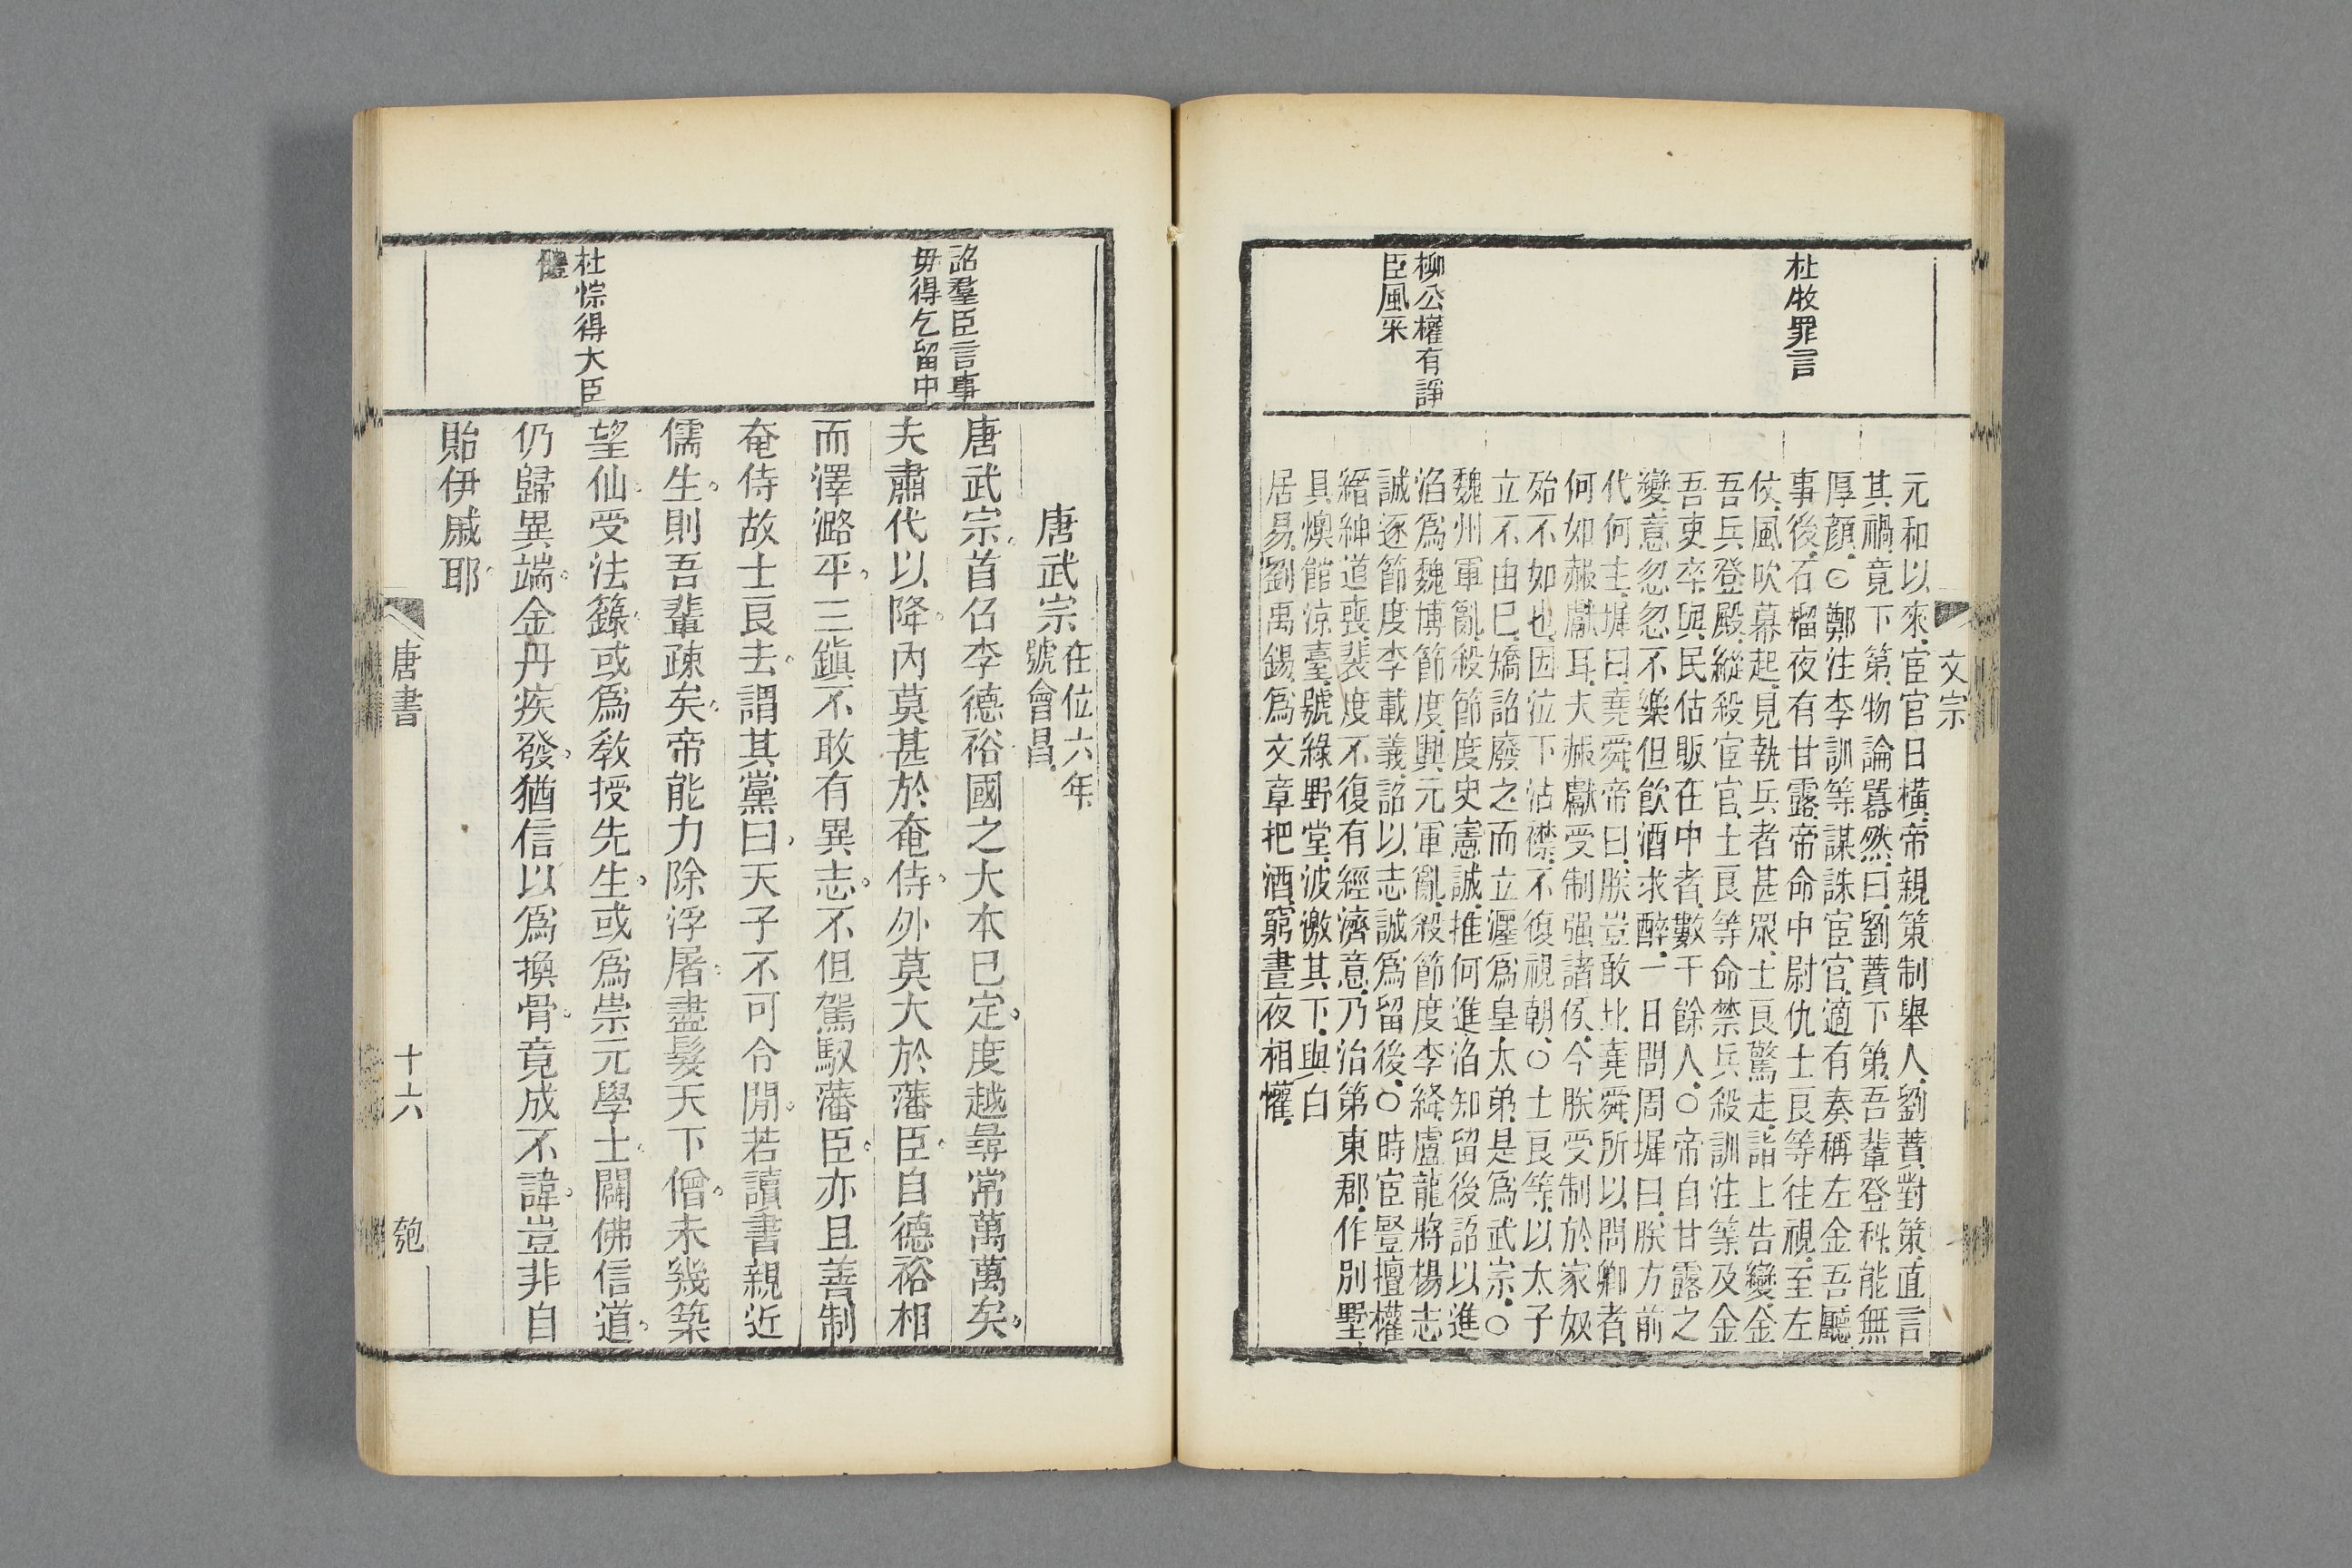 文宗
杜牧罪言
柳公權有諍
臣風采
元和以來宦官日橫帝親策制舉人劉蕡對策直言
其禍竟下第物論囂然曰劉蕡下第吾輩登科能無
厚顏〇鄭注李訓等謀誅宦官適有奏稱左金吾廳
事後石榴夜有甘露帝命中尉仇士良等往視至左
仗風吹幕起見執兵者甚眾士良驚走詣上告變金
吾兵登殿縱殺宦官士良等命禁兵殺訓注等及金
吾吏卒與民估販在中者數千餘人〇帝自甘露之
變意忽忽不樂但飲酒求醉一日問周墀曰朕方前
代何主墀曰堯舜帝曰朕豈敢比堯舜所以問卿者
何如赧獻耳夫赧獻受制强諸侯今朕受制於家奴
殆不如也因泣下沾襟不復視朝〇士良等以太子
立不由已矯詔廢之而立瀍爲皇太弟是爲武宗〇
魏州軍亂殺節度史憲誠推何進滔知留後詔以進
滔爲魏博節度興元軍亂殺節度李絳盧龍將楊志
誠逐節度李載義詔以志誠爲留後〇時宦豎擅權
縉紳道喪裴度不復有經濟意乃治第東郡作別墅
具燠館涼臺號綠野堂波激其下與白
居易劉禹錫爲文章把酒窮晝夜相懽
詔羣臣言事
毋得乞留中
杜悰得大臣
體
唐武宗在位六年
號會昌
唐武宗首召李德裕國之大本已定度越尋常萬萬矣
夫肅代以降內莫甚於奄侍外莫大於藩臣自德裕相
而澤潞平三鎭不敢有異志不但駕馭藩臣亦且善制
奄侍故士良去謂其黨曰天子不可令閒若讀書親近
儒生則吾輩疎矣帝能力除浮屠盡髮天下僧未幾築
望仙受法籙或爲敎授先生或爲崇元學士闢佛信道
仍歸異端金丹疾發猶信以爲換骨竟成不諱豈非自
貽伊戚耶
唐書
十六
匏